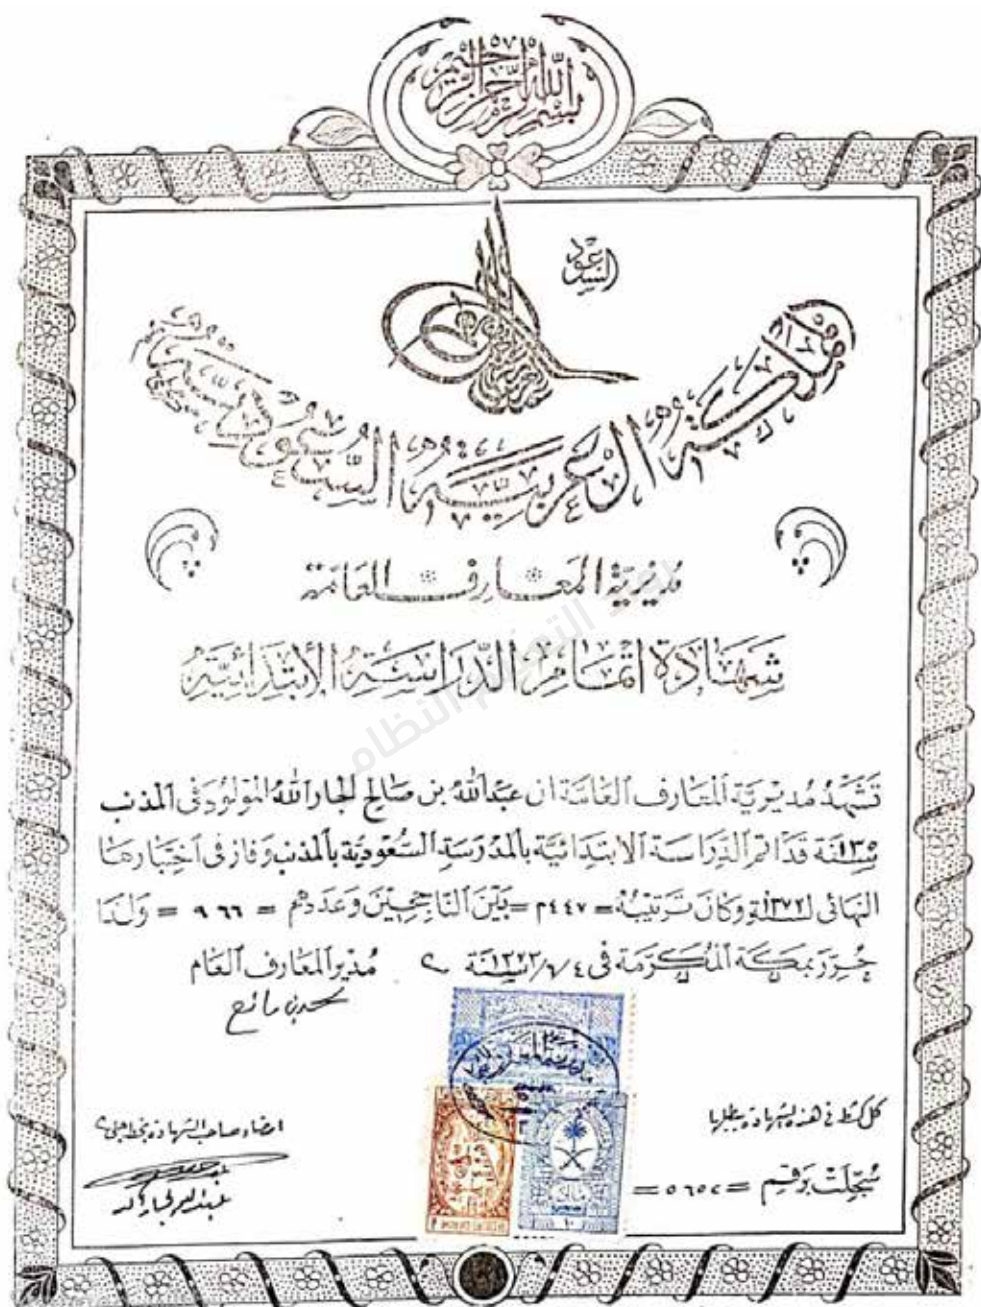 بسم الله الرحمن الرحيم
السعود
المملكة العربية السعودية
مديرية المعارف العامة
شهادة اتمام الدراسة الابتدائية
تشهد مديرية المعارف العامة ان عبدالله بن صالح الجارالله المولود في المذنب
سنة ١٣٥ قد اتم الدراسة الابتدائية بالمدرسة السعودية بالمذنب وفاز في اختبارها
النهائي لسنة ١٣٧٢ وكان ترتيبه = ٤٤٧م = بين الناجحين وعددهم = ٩٦٦ = ولذا
حرر بمكة المكرمة في سنة مدير المعارف العام
محمد بن مانع
كل كشط في هذه الشهادة يبطلها
امضاء صاحب الشهادة بخط جلي
سجلت برقم = ٥٦٥٤ =
النظام